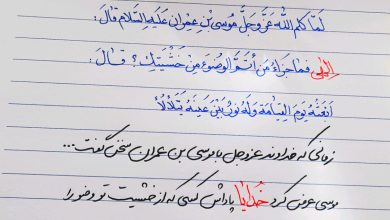 لَمّا کَلَّمَ اللهُ عَزَّوَجَلَّ مُوسَی بْنِ عِمْرانَ عَلَیْهِ السَّلامُ قالَ:
إلٰهی فَما جَزاءُ مَنْ أَتَمَّ الوُضُوءَ مِنْ خَشْیَتِكَ؟ قالَ:
أَبْعَثُهُ یَوْمَ القِیامَةِ وَلَهُ نُورٌ بَیْنَ عَیْنَیْهِ یَتَلَأْلَأُ
زمانی که خداوند عزوجل با موسی بن عمران سخن گفت...
موسی عرض کرد خدایا پاداش کسی که از خشیت تو وضو را